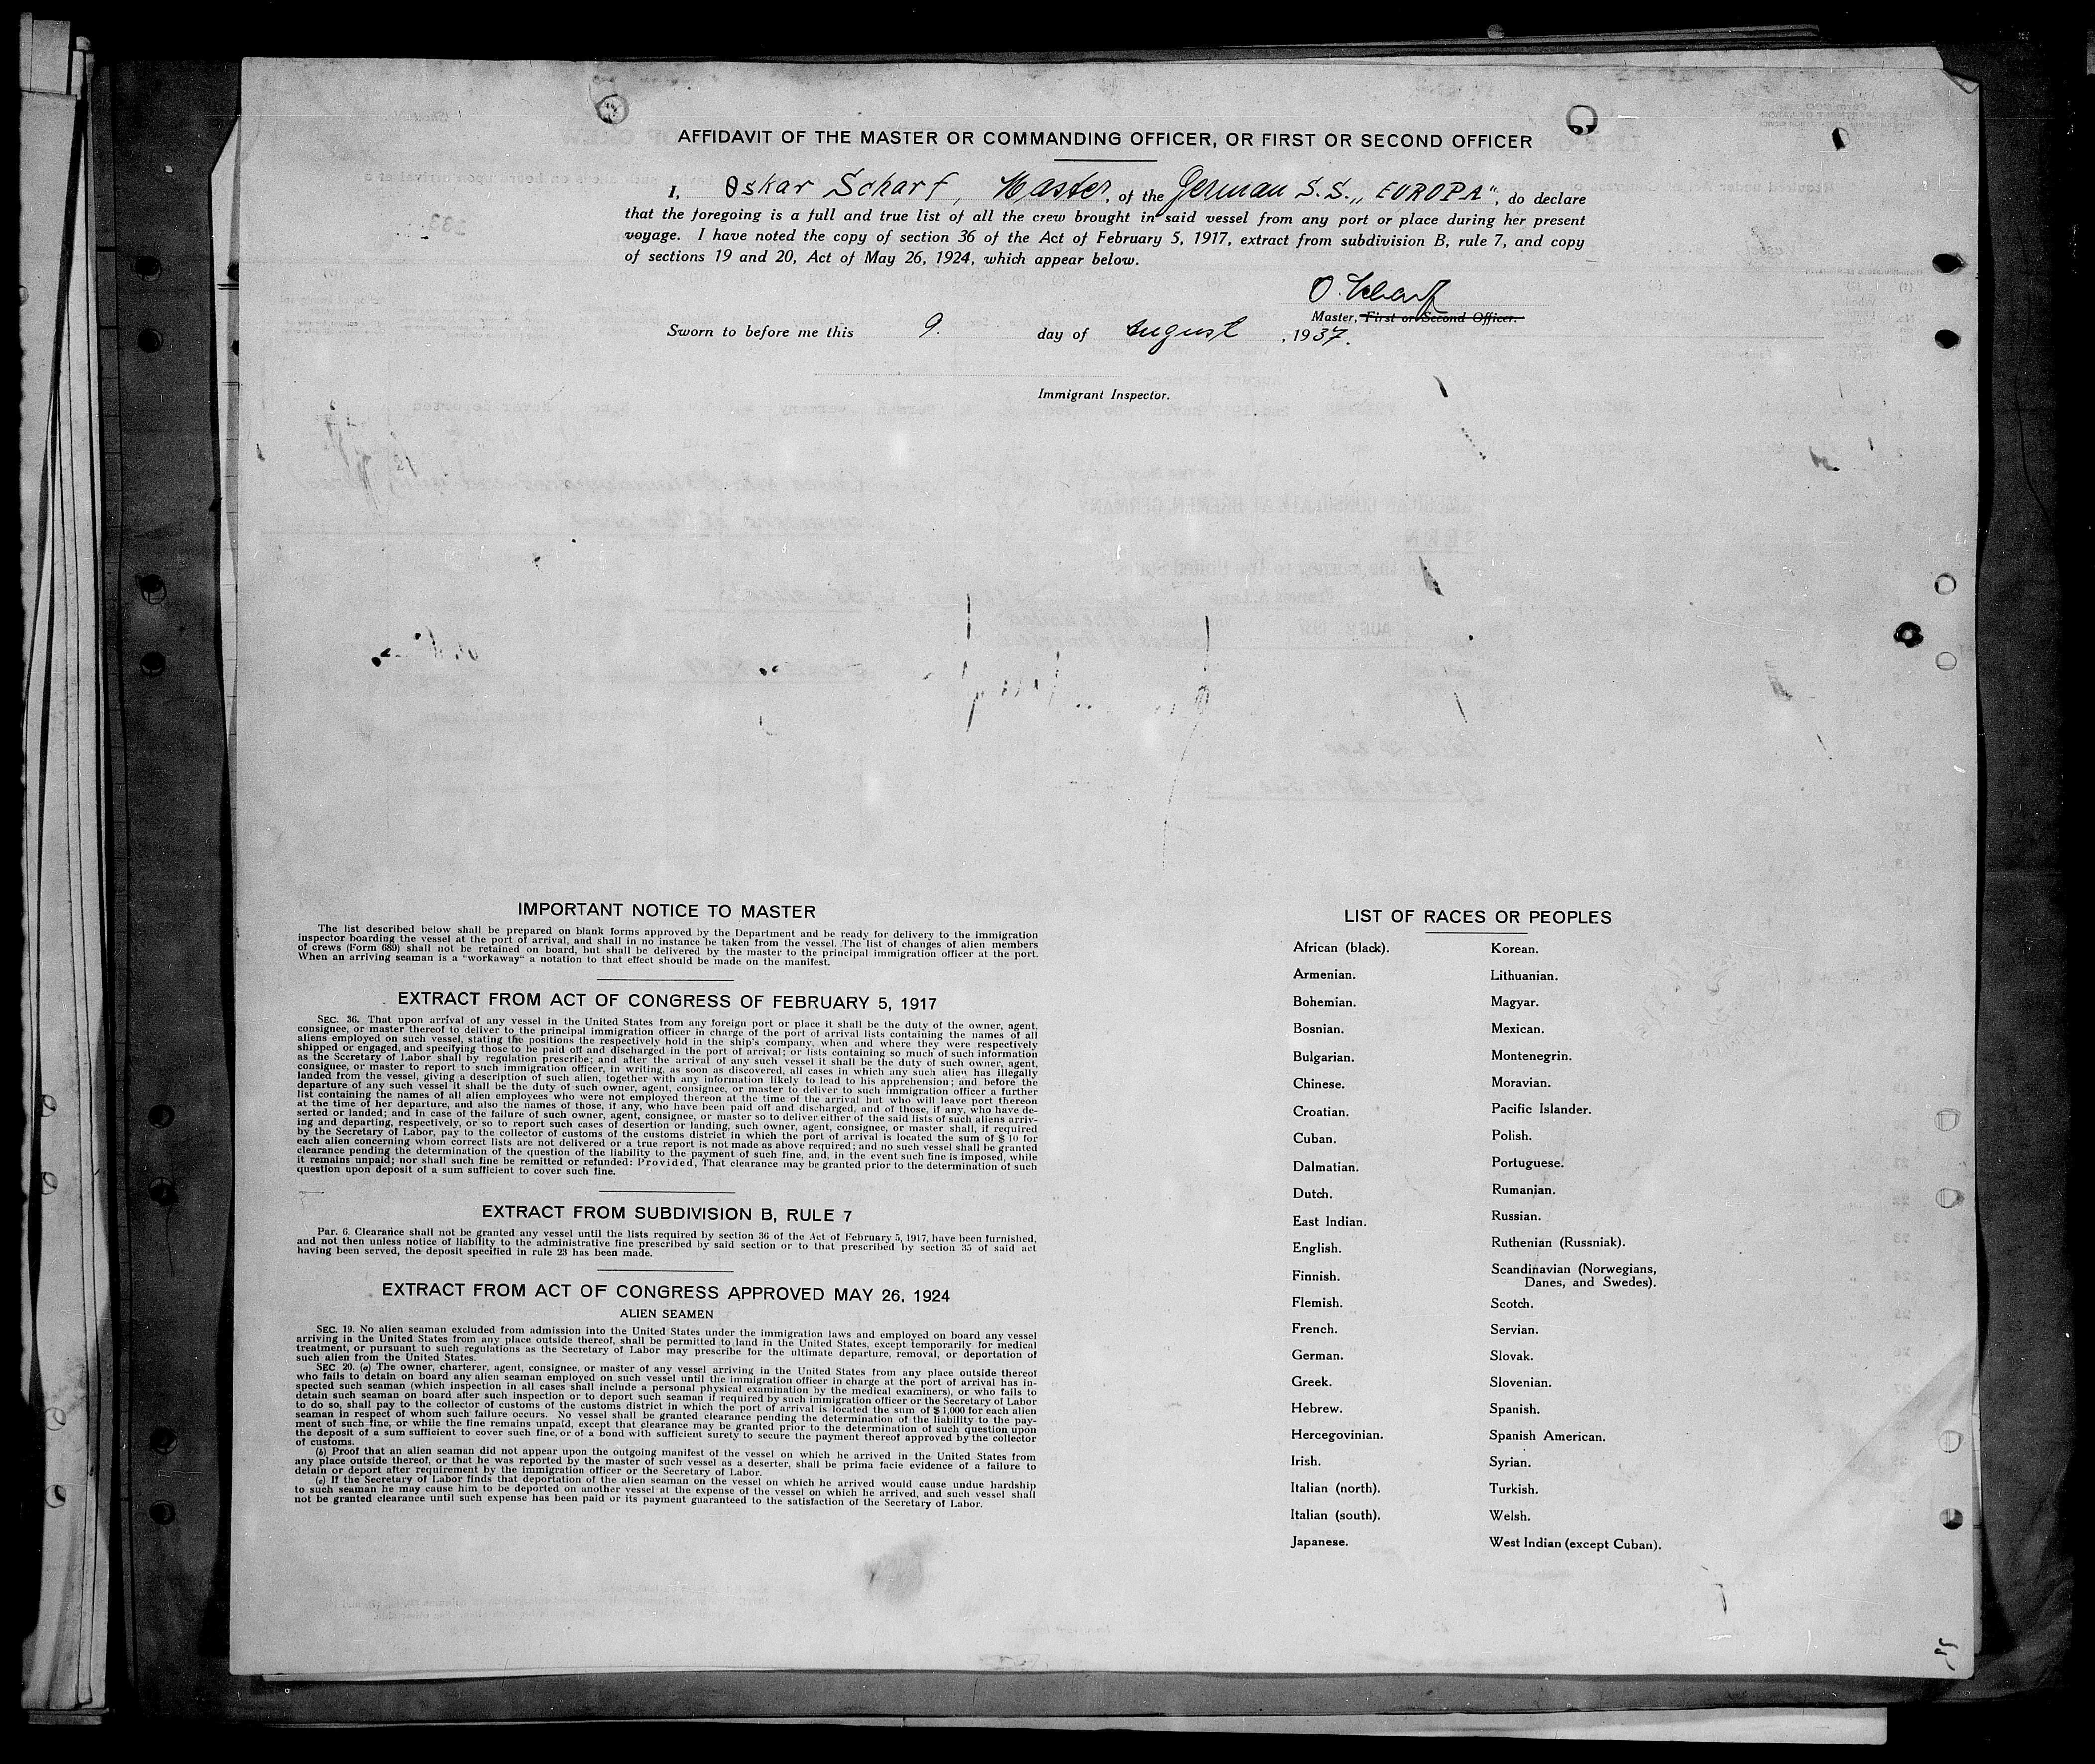 AFFIDAVIT OF THE MASTER OR COMMANDING OFFICER, OR FIRST OR SECOND OFFICER
I, Oskar Scharf, Master, of the German S.S. „EUROPA", do declare
that the foregoing is a full and true list of all the crew brought in said vessel from any port or place during her present
voyage. I have noted the copy of section 36 of the Act of February 5, 1917, extract from subdivision B, rule 7, and copy
of sections 19 and 20, Act of May 26, 1924, which appear below.
O. Scharf
Master, First or Second Officer.
Sworn to before me this 9. day of August, 1937.
Immigrant Inspector.
IMPORTANT NOTICE TO MASTER
The list described below shall be prepared on blank forms approved by the Department and be ready for delivery to the immigration
inspector boarding the vessel at the port of arrival, and shall in no instance be taken from the vessel. The list of changes of alien members
of crews (Form 689) shall not be retained on board, but shall be delivered by the master to the principal immigration officer at the port.
When an arriving seaman is a "workaway" a notation to that effect should be made on the manifest.
EXTRACT FROM ACT OF CONGRESS OF FEBRUARY 5, 1917
SEC. 36. That upon arrival of any vessel in the United States from any foreign port or place it shall be the duty of the owner, agent,
consignee, or master thereof to deliver to the principal immigration officer in charge of the port of arrival lists containing the names of all
aliens employed on such vessel, stating the positions the respectively hold in the ship's company, when and where they were respectively
shipped or engaged, and specifying those to be paid off and discharged in the port of arrival; or lists containing so much of such information
as the Secretary of Labor shall by regulation prescribe; and after the arrival of any such vessel it shall be the duty of such owner, agent,
consignee, or master to report to such immigration officer, in writing, as soon as discovered, all cases in which any such alien has illegally
landed from the vessel, giving a description of such alien, together with any information likely to lead to his apprehension; and before the
departure of any such vessel it shall be the duty of such owner, agent, consignee, or master to deliver to such immigration officer a further
list containing the names of all alien employees who were not employed thereon at the time of the arrival but who will leave port thereon
at the time of her departure, and also the names of those, if any, who have been paid off and discharged, and of those, if any, who have de-
serted or landed; and in case of the failure of such owner, agent, consignee, or master so to deliver either of the said lists of such aliens arriv-
ing and departing, respectively, or so to report such cases of desertion or landing, such owner, agent, consignee, or master shall, if required
by the Secretary of Labor, pay to the collector of customs of the customs district in which the port of arrival is located the sum of $ 10 for
each alien concerning whom correct lists are not delivered or a true report is not made as above required; and no such vessel shall be granted
clearance pending the determination of the question of the liability to the payment of such fine, and, in the event such fine is imposed, while
it remains unpaid; nor shall such fine be remitted or refunded: Provided, That clearance may be granted prior to the determination of such
question upon deposit of a sum sufficient to cover such fine.
EXTRACT FROM SUBDIVISION B, RULE 7
Par. 6. Clearance shall not be granted any vessel until the lists required by section 36 of the Act of February 5, 1917, have been furnished,
and not then unless notice of liability to the administrative fine prescribed by said section or to that prescribed by section 35 of said act
having been served, the deposit specified in rule 23 has been made.
EXTRACT FROM ACT OF CONGRESS APPROVED MAY 26, 1924
ALIEN SEAMEN
SEC. 19. No alien seaman excluded from admission into the United States under the immigration laws and employed on board any vessel
arriving in the United States from any place outside thereof, shall be permitted to land in the United States, except temporarily for medical
treatment, or pursuant to such regulations as the Secretary of Labor may prescribe for the ultimate departure, removal, or deportation of
such alien from the United States.
SEC 20. (a) The owner, charterer, agent, consignee, or master of any vessel arriving in the United States from any place outside thereof
who fails to detain on board any alien seaman employed on such vessel until the immigration officer in charge at the port of arrival has in-
spected such seaman (which inspection in all cases shall include a personal physical examination by the medical examiners), or who fails to
detain such seaman on board after such inspection or to deport such seaman if required by such immigration officer or the Secretary of Labor
to do so, shall pay to the collector of customs of the customs district in which the port of arrival is located the sum of $ 1,000 for each alien
seaman in respect of whom such failure occurs. No vessel shall be granted clearance pending the determination of the liability to the pay-
ment of such fine, or while the fine remains unpaid, except that clearance may be granted prior to the determination of such question upon
the deposit of a sum sufficient to cover such fine, or of a bond with sufficient surety to secure the payment thereof approved by the collector
of customs.
(b) Proof that an alien seaman did not appear upon the outgoing manifest of the vessel on which he arrived in the United States from
any place outside thereof, or that he was reported by the master of such vessel as a deserter, shall be prima facie evidence of a failure to
detain or deport after requirement by the immigration officer or the Secretary of Labor.
(c) If the Secretary of Labor finds that deportation of the alien seaman on the vessel on which he arrived would cause undue hardship
to such seaman he may cause him to be deported on another vessel at the expense of the vessel on which he arrived, and such vessel shall
not be granted clearance until such expense has been paid or its payment guaranteed to the satisfaction of the Secretary of Labor.
LIST OF RACES OR PEOPLES
African (black).
Armenian.
Bohemian.
Bosnian.
Bulgarian.
Chinese.
Croatian.
Cuban.
Dalmatian.
Dutch.
East Indian.
English.
Finnish.
Flemish.
French.
German.
Greek.
Hebrew.
Hercegovinian.
Irish.
Italian (north).
Italian (south).
Japanese.
Korean.
Lithuanian.
Magyar.
Mexican.
Montenegrin.
Moravian.
Pacific Islander.
Polish.
Portuguese.
Rumanian.
Russian.
Ruthenian (Russniak).
Scandinavian (Norwegians,
Danes, and Swedes).
Scotch.
Servian.
Slovak.
Slovenian.
Spanish.
Spanish American.
Syrian.
Turkish.
Welsh.
West Indian (except Cuban).